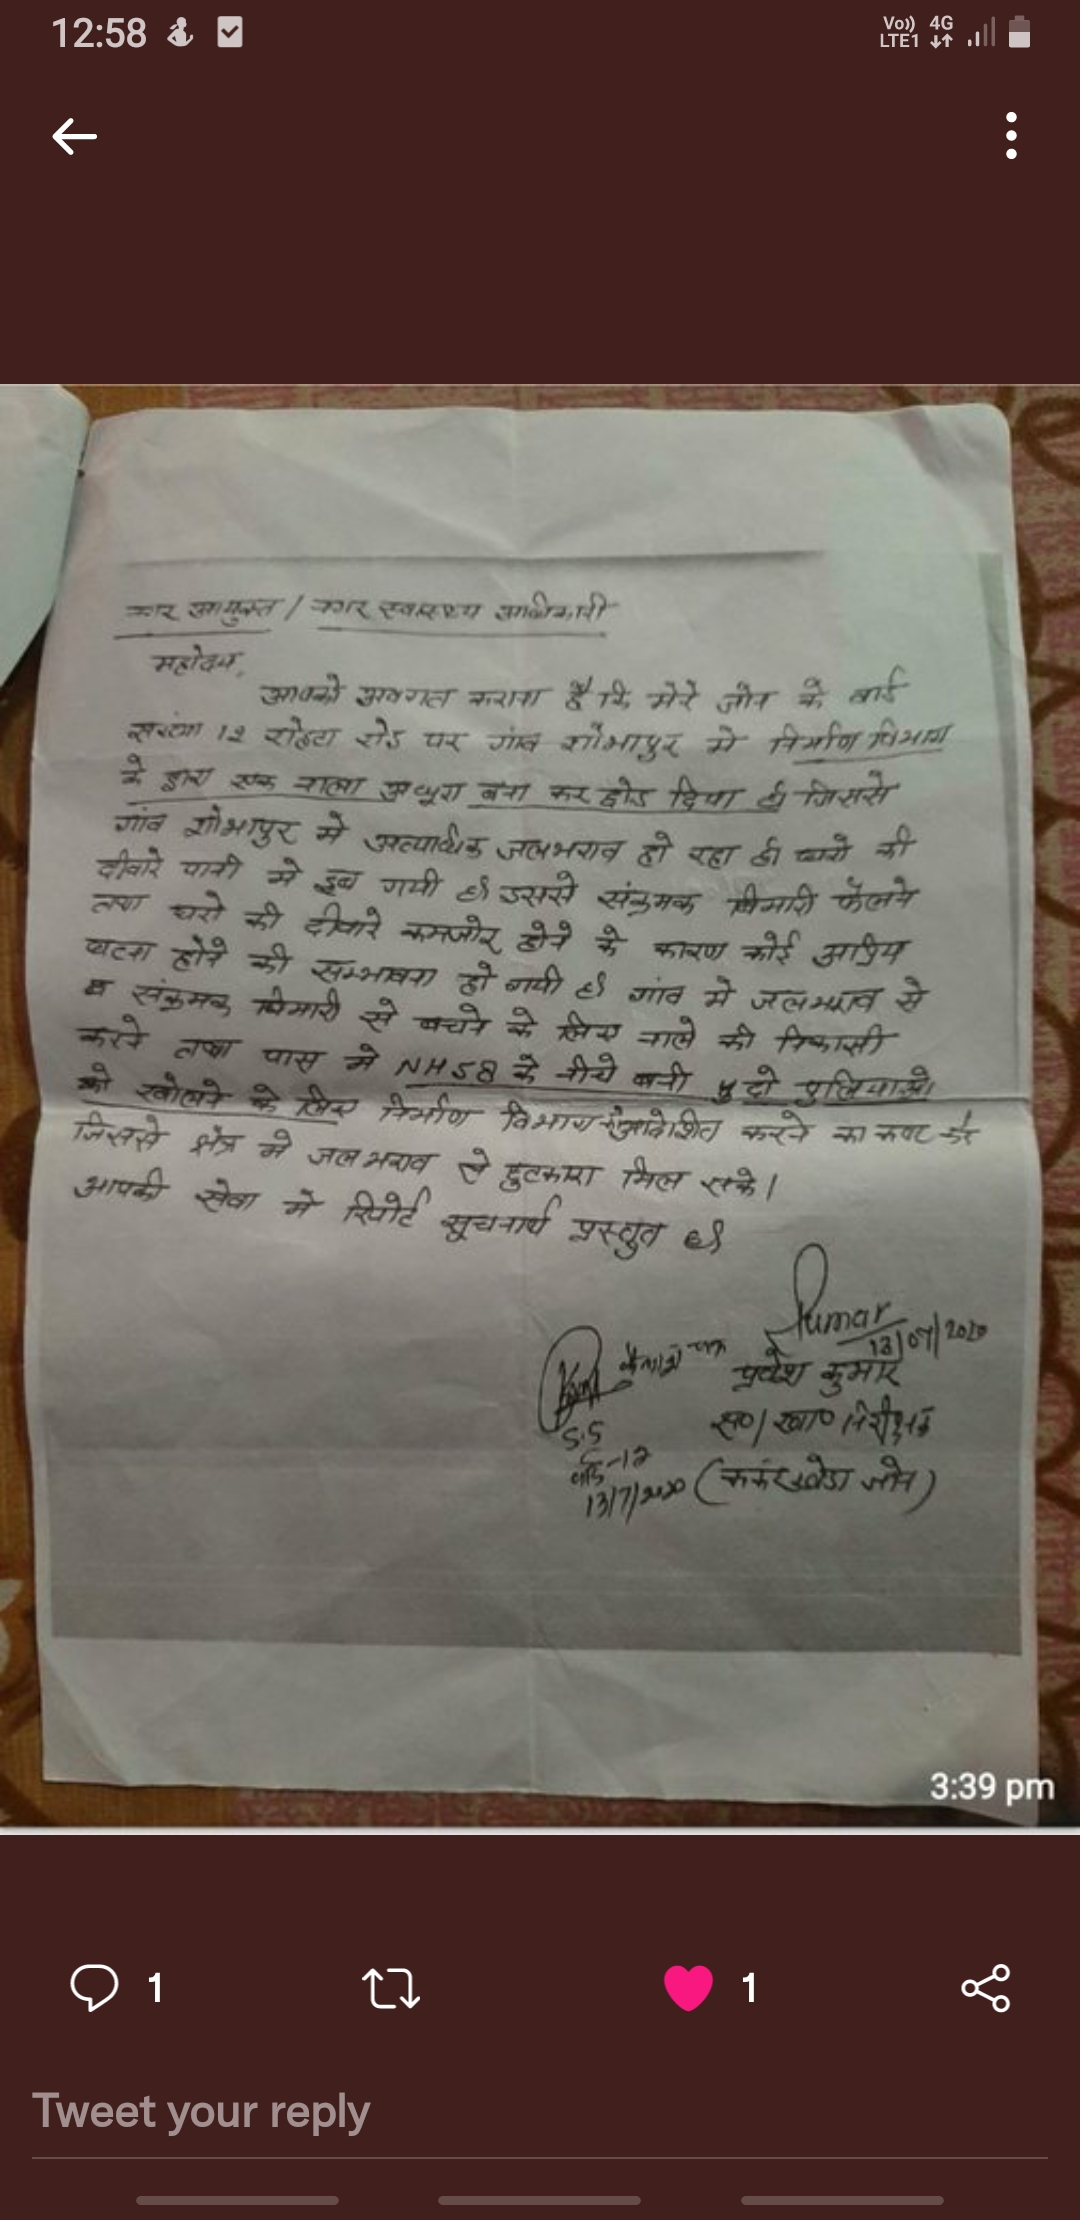 12:58
Vo)) 4G
LTE1
नगर आयुक्त / नगर स्वास्थ्य अधिकारी
महोदय,
आपको अवगत कराना है कि मेरे जोन के वार्ड
संख्या 12 रोहटा रोड पर गांव शोभापुर मे निर्माण विभाग
के द्वारा एक नाला अधूरा बना कर छोड दिया है। जिससे
गांव शोभापुर मे अत्याधिक जलभराव हो रहा है। घरो की
दीवारे पानी मे डूब गयी है। उससे संक्रमक बिमारी फैलने
तथा घरो की दीवारे कमजोर होने के कारण कोई अप्रिय
घटना होने की सम्भावना हो गयी है। गांव मे जलभराव से
व संक्रमक बिमारी से बचने के लिए नाले की निकासी
करने तथा पास मे NH58 के नीचे बनी दो पुलियाओ
को खोलने के लिए निर्माण विभाग को आदेशित करने का कष्ट करे
जिससे क्षेत्र मे जल भराव से छुटकारा मिल सके।
आपकी सेवा मे रिपोर्ट सूचनार्थ प्रस्तुत है।
Kumar
13/07/2020
कैलाश चन्द
प्रवेश कुमार
S.S
स०/खा० निरीक्षक
वार्ड-12
13/7/2020
(कंकरखेडा जोन)
3:39 pm
1
1
Tweet your reply